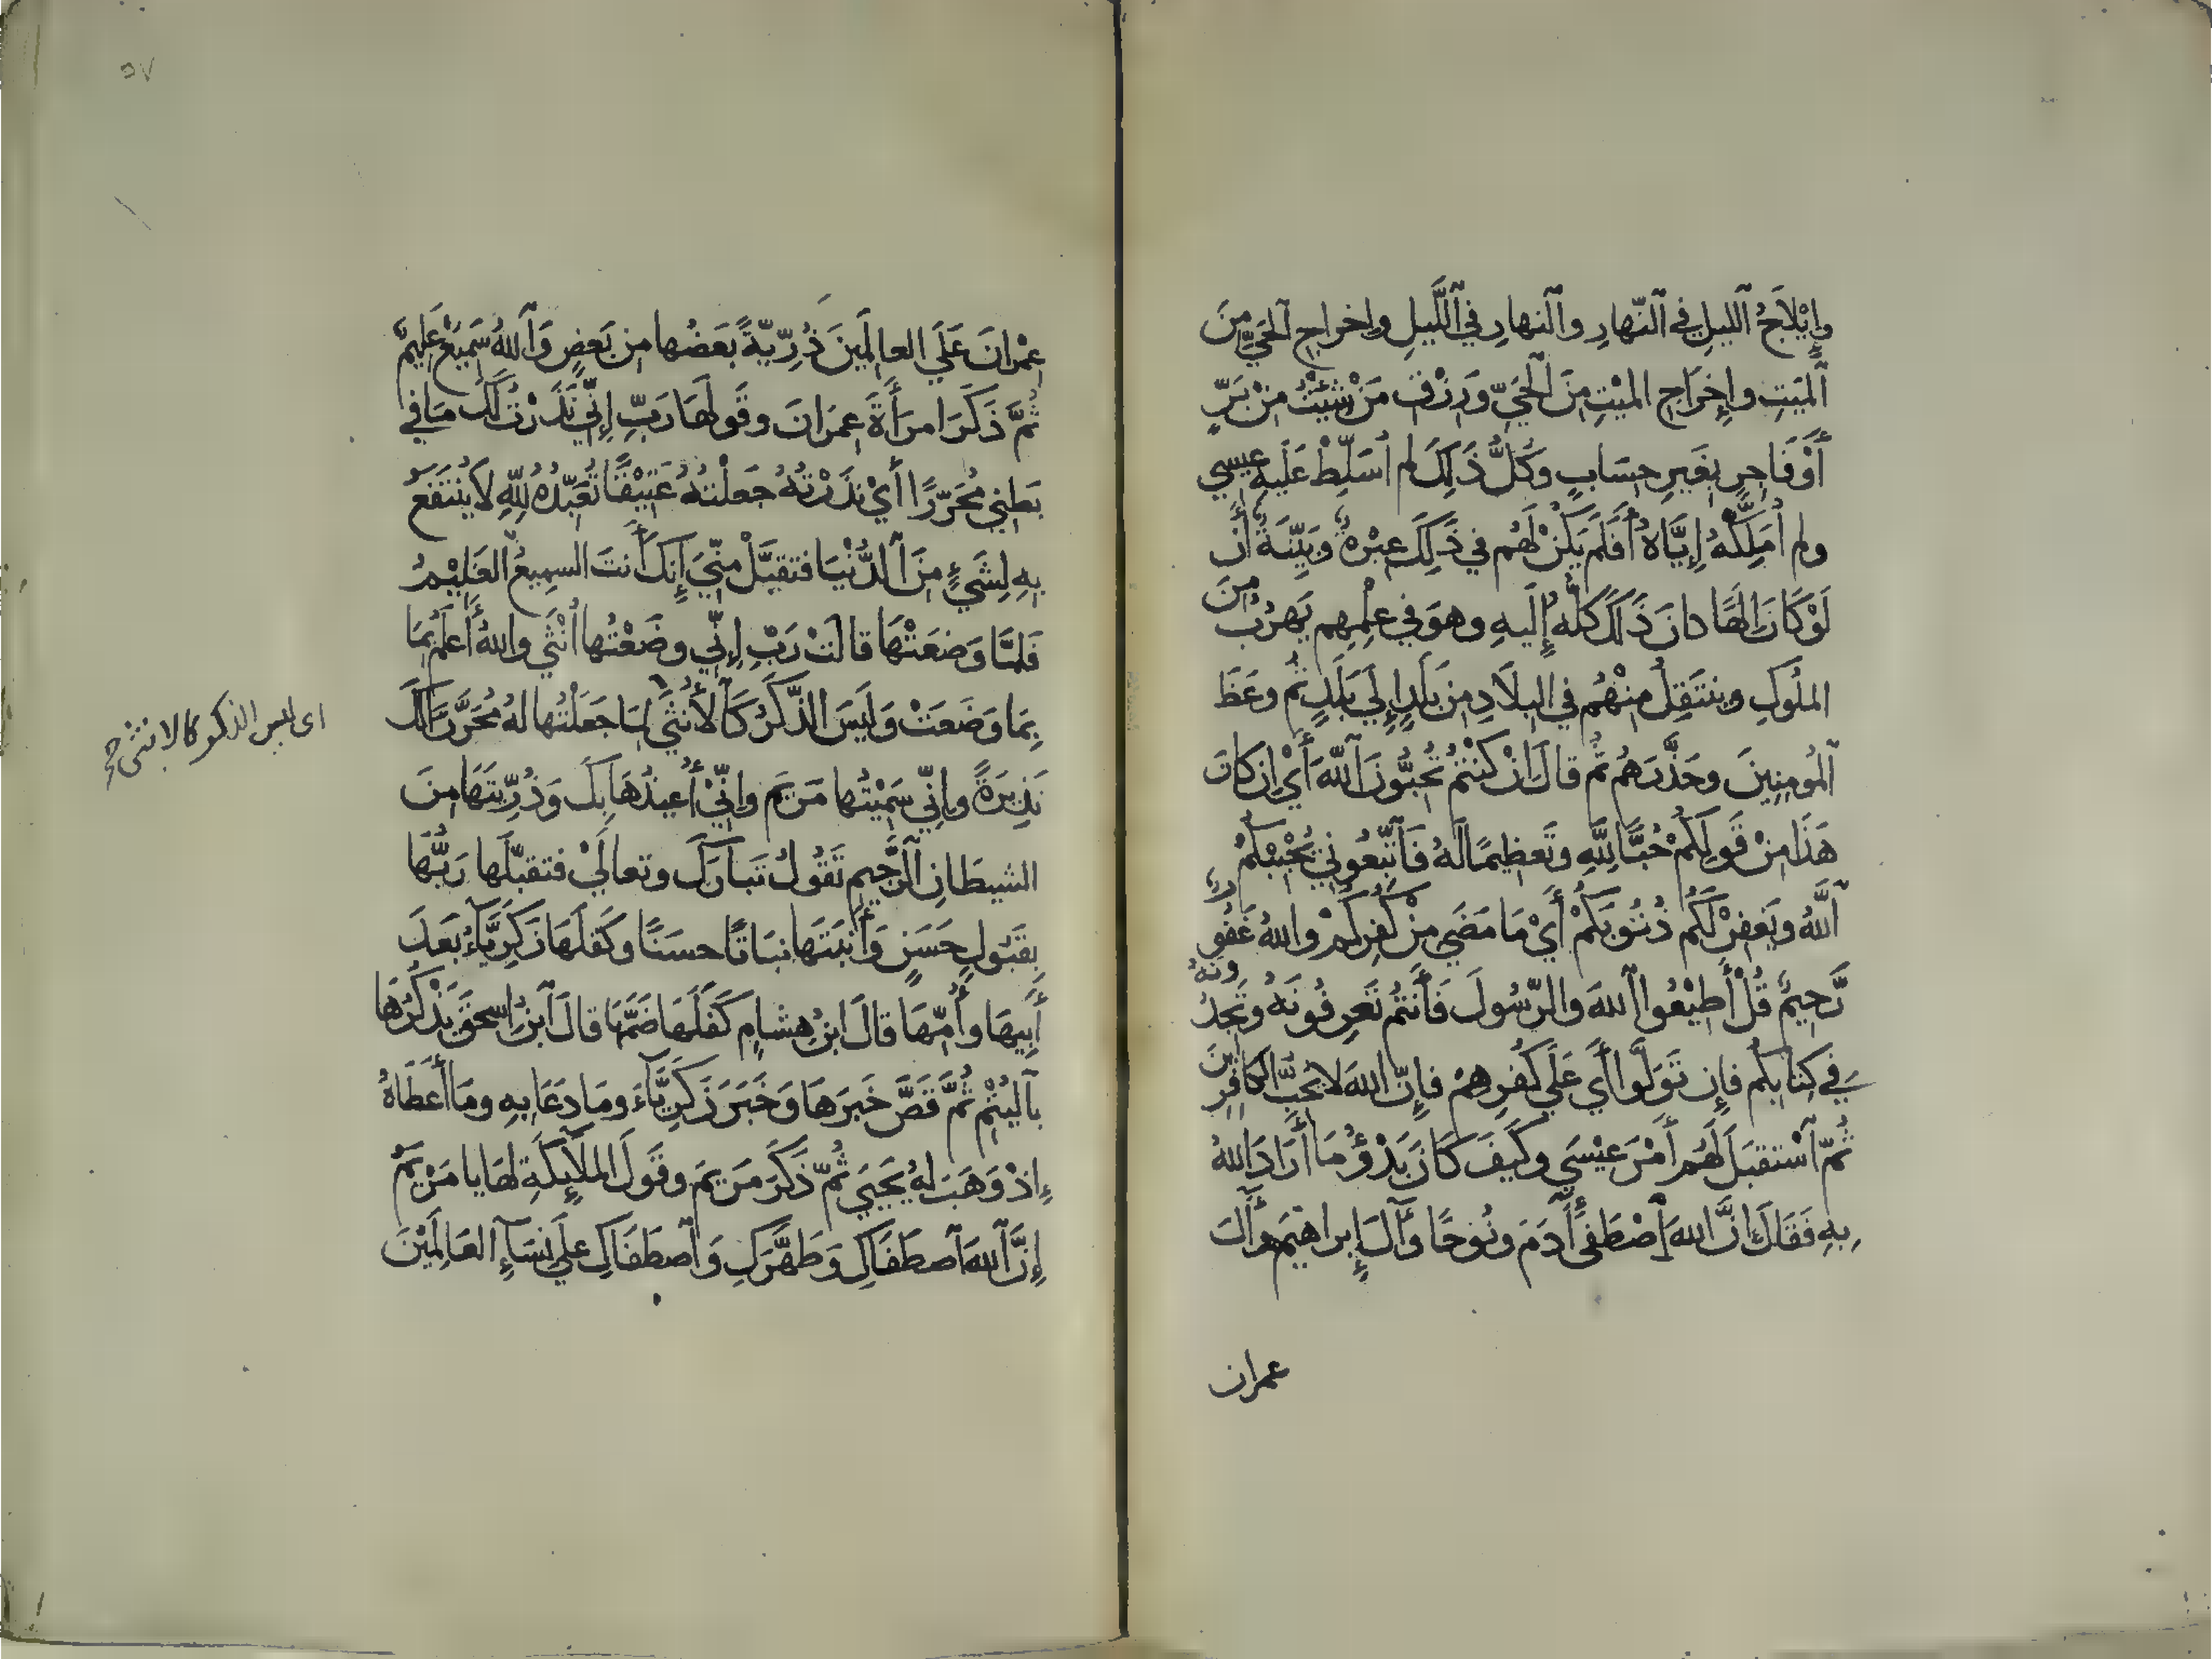 وإِيْلَاجُ ٱلليلِ في ٱلنّهارِ وٱلنهارِ في ٱللَّيلِ وإخراجِ ٱلحَيِّ مِنَ
ٱلميَتِ وإِخرَاجِ الميْتِ مِنَ ٱلحَيِّ وَرَزْقَ مَنْ شِيْتُ مِنْ بَرٍّ
أَوْ فَاجرٍ بغَيرِ حِسَابٍ وكُلُّ ذَلِكَ لم أُسَلِّطْ عَلَيهِ عِيسي
ولم أُمَلِّكْهُ إِيَّاهُ أَفَلَم يَكُنْ لَهُم في ذَلِكَ عِبْرةٌ وَبَيِّنَةٌ أَن
لَوْ كَانَ إِلهًا كانَ ذَلكَ كلُّهُ إِلَيهِ وهوَ في عِلْمِهِم يَهرُبُ مِنَ
الملُوكِ وينتَقِلُ مِنْهُم في البِلَادِ مِن بَلَدٍ إِلي بَلَدٍ ثُم وعَظَ
ٱلمُومِنِينَ وحَذَّرَهُم ثُم قالَ إنْ كُنْتُم تُحِبُّونَ ٱللّهَ أَيْ إن كانَ
هَذَا مِنْ قَولِكُمْ حُبًّا لِلَّهِ وتَعظِيمًا لَهُ فَٱتَّبِعُوني يُحْبِبْكُمُ
ٱللَّهُ ويَغفِرْ لَكُم ذُنُوبَكُمْ أَيْ مَا مَضَي مِنْ كُفرِكُمْ واللهُ غَفُورٌ
رَّحِيمٌ قُلْ أَطِيْعُوا ٱللهَ والرّسُولَ فَأَنتُم تَعرِفُونَهُ وتَجِدُونَهُ
في كِتابِكُم فإن تَوَلَّوا أَي عَلَي كُفرِهمْ فإِنّ اللهَ لا يُحِبُّ الكَافِرِينَ
ثُمّ ٱسْتقبَلَ لَهُم أَمْرَ عيْسَي وكَيفَ كَانَ بَدْؤُ مَا أَرَادَ اللهُ
بِهِ فَقَالَ إِنَّ اللهَ ٱصْطَفَى آدَمَ ونُوحًا وآلَ إِبراهيمَ وآلَ
عمران
٥٧
عِمْرانَ عَلَي العالمِينَ ذُرِّيّةً بَعضُها مِن بَعضٍ وَٱللهُ سَمِيعٌ عَلِيمٌ
ثُمَّ ذَكَرَ امرَأَةَ عِمرَانَ وقَولَها رَبِّ إِنّي نَذَرْتُ لَكَ ما في
بَطني مُحَرّرًا أَيْ نَذَرْتُهُ جعَلْتُهُ عَتِيْقًا تُعَبِّدُهُ لِلّهِ لَا يُنْتَفَعُ
بهِ لِشَيْءٍ مِنَ ٱلدُّنْيَا فتقبّلْ مِنّيَ إِنّكَ أَنتَ السمِيعُ العَلِيْمُ
فَلمَّا وَضعَتْهَا قالَتْ رَبِّ إِنّي وضَعْتُها أُنْثَي واللهُ أَعلمُ بِمَا
بِمَا وَضَعَتْ وَلَيسَ الذَّكَرُ كَٱلأُنثَي لمَا جَعَلْتُها لهُ مُحَرَّرًا لَكَ
نَذِيرَةً وإنّي سَمَيْتُها مَريَم وإنّيْ أُعيذُهَا بِكَ وَذُرِّيتَهَا مِنَ
الشيطَانِ ٱلرَّجيمِ تَقُولُ تَبَارَكَ وتعالَيْ فتقبّلَها رَبُّها
بِقَبُولٍ حَسَنٍ وَأَنبَتَها نبَاتًا حسَنًا وكَفَلَهَا زَكَرِيَّآءُ بَعدَ
أَبِيهَا وأُمّهَا قالَ ابنُ هِشامٍ كَفَلَهَا ضَمَّهَا قالَ ٱبنُ إسحقَ يَذْكُرُهَا
بٱليُتْمِ ثُمَّ قَصَّ خَبرَهَا وَخَبَرَ زَكَرِيَّآءَ ومَا دَعَا بِهِ ومَا أَعطَاهُ
إذْ وَهَبَ لهُ يَحيَي ثُمّ ذَكَرَ مَريَمَ وقَولَ الملَآيِكَةِ لهَا يا مَرْيَمُ
إِنَّ ٱللهَ ٱصطَفَاكِ وَطَهَّرَكِ وَٱصطَفَاكِ علَي نِسَآءِ العَالَمِيْنَ
اى ليس الذكر كالانثى